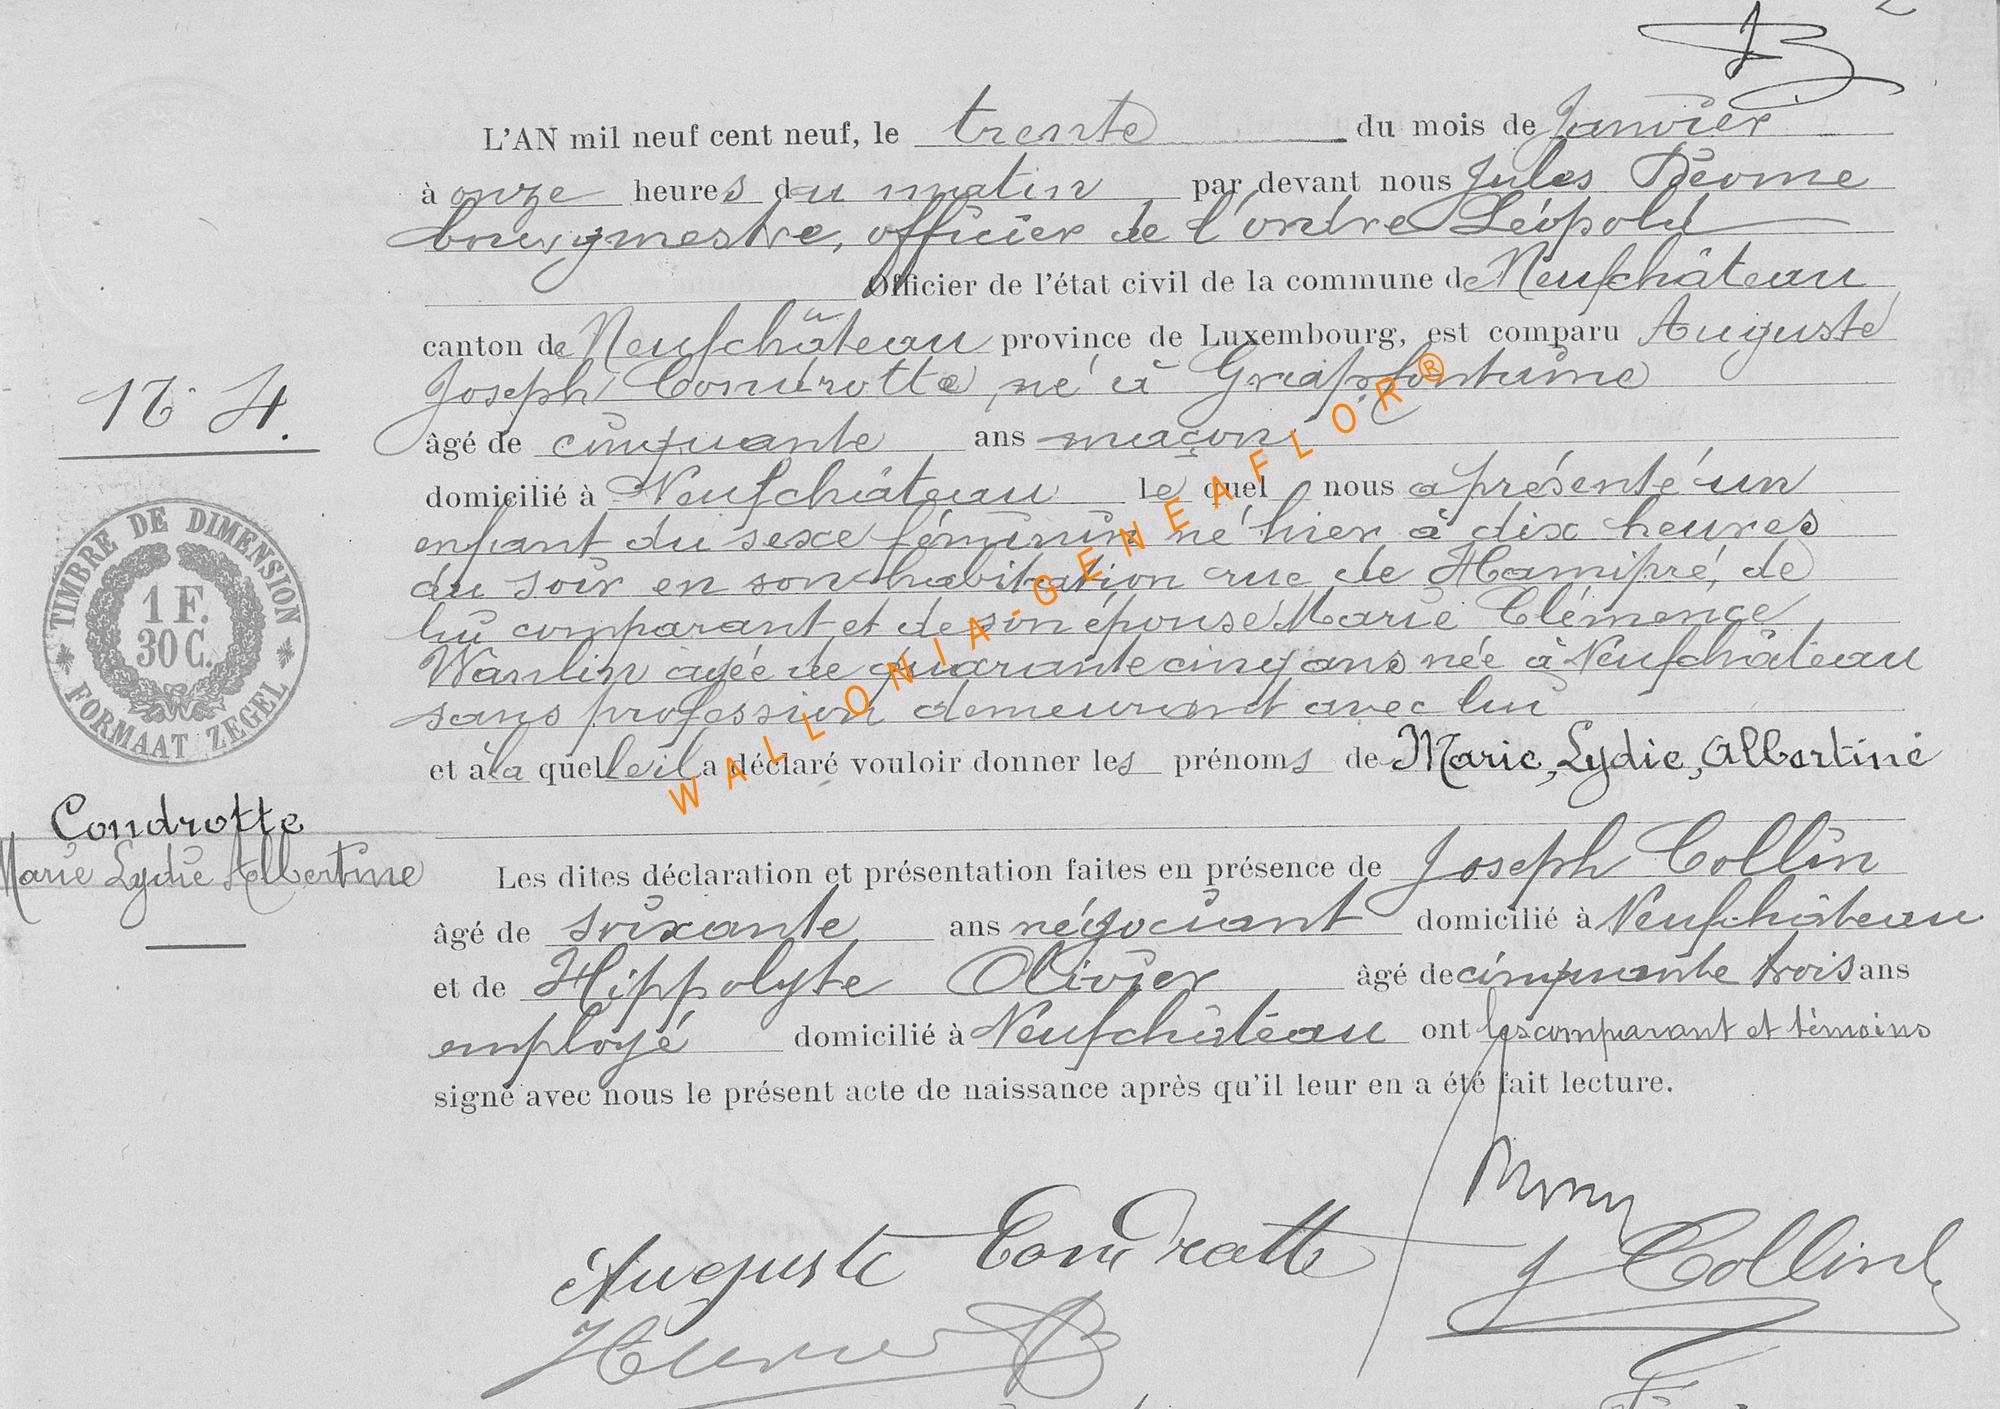 L'AN mil neuf cent neuf, le trente du mois de Janvier
à onze heures du matin par devant nous Jules
bourgmestre, officier de l'ordre Léopold
Officier de l'état civil de la commune de Neufchâteau
canton de Neufchâteau province de Luxembourg, est comparu Auguste
Joseph Condrotte, né à Grapfontaine
âgé de cinquante ans maçon
domicilié à Neufchâteau le quel nous a présenté un
enfant du sexe féminin né hier à dix heures
du soir en son habitation rue de Hamipré, de
lui comparant et de son épouse Marie Clémence
Wanlin agée de quarante cinq ans née à Neufchâteau
sans profession demeurant avec lui
et à la quelle il a déclaré vouloir donner les prénoms de Marie, Lydie, Albertine
N° 4.
TIMBRE DE DIMENSION
1 F.
30 C.
FORMAAT ZEGEL
Condrotte
Marie Lydie Albertine
Les dites déclaration et présentation faites en présence de Joseph Collin
âgé de soixante ans négociant domicilié à Neufchâteau
et de Hippolyte Olivier âgé de cinquante trois ans
employé domicilié à Neufchâteau ont les comparant et témoins
signé avec nous le présent acte de naissance après qu'il leur en a été fait lecture.
Auguste Condrotte
J Collin
WALLONIA-GENEAFLOR®